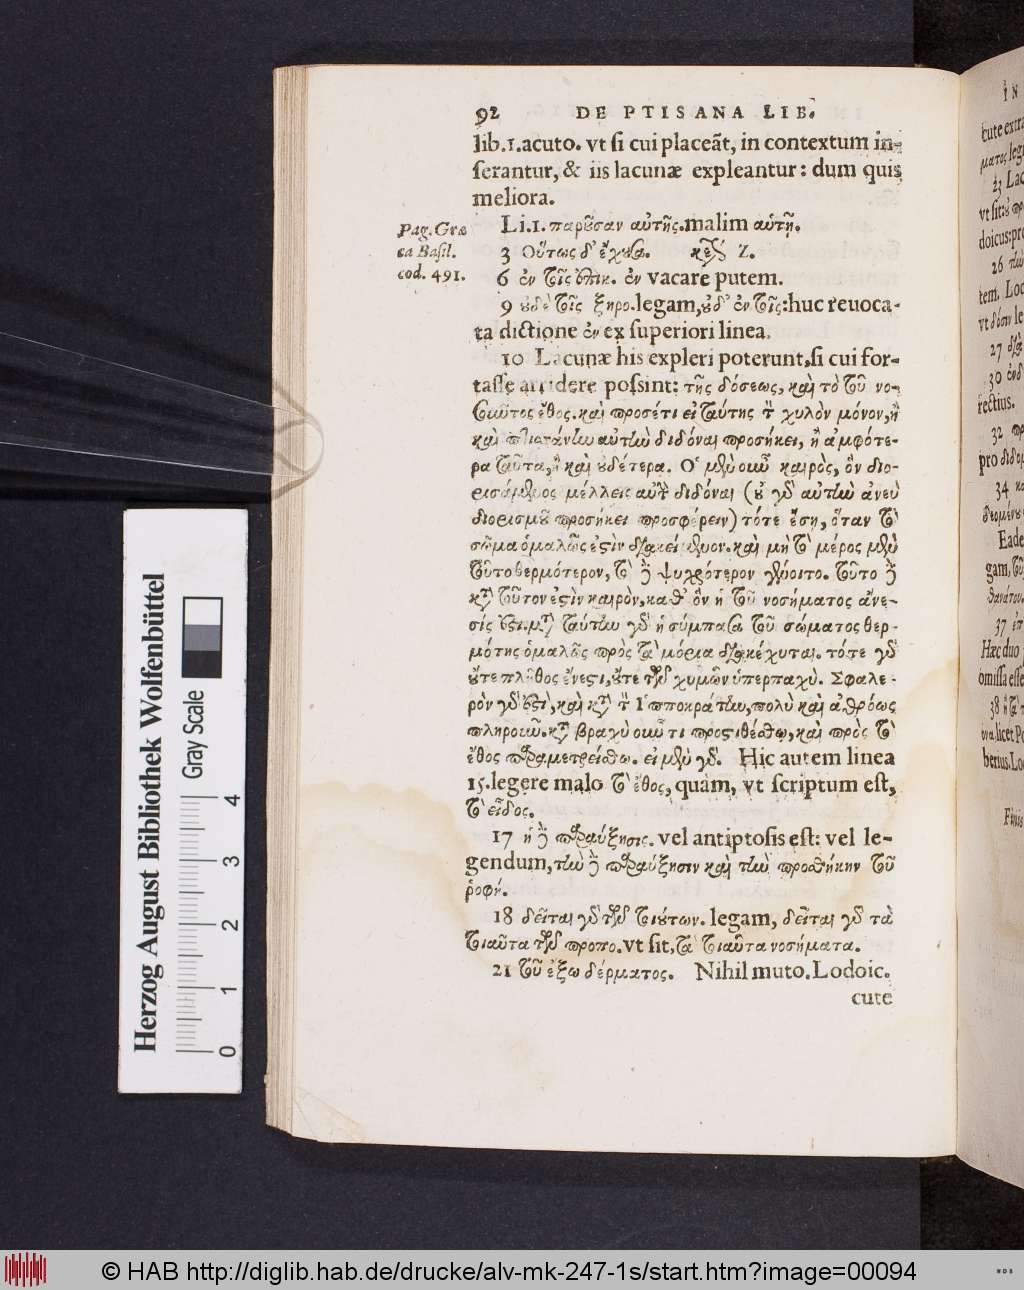 92 DE PTISANA LIB.
lib.1.acuto. vt si cui placeãt, in contextum in-
serantur, & iis lacunæ expleantur: dum quis
meliora.
Li.1. παροῦσαν αὐτῆς. malim αὑτῇ.
Pag. Græ
ca Basil.
cod. 491.
3 Οὕτως δ' ἔχουσι. καὶ Z.
6 ἐν τοῖς ἐπικ. ἐν vacare putem.
9 οὐδὲ τοῖς ξηρο. legam, οὐδ' ἐν τοῖς: huc reuoca-
ta dictione ἐν ex superiori linea.
10 Lacunæ his expleri poterunt, si cui for-
tasse arridere possint: τῆς δόσεως, καὶ τὸ τοῦ νο-
σοῦντος ἔθος. καὶ προσέτι εἰ ταύτης τὸν χυλὸν μόνον, ἢ
καὶ πτισάνην αὐτὴν διδόναι προσήκει, ἢ ἀμφότε-
ρα ταῦτα, ἢ καὶ οὐδέτερα. Ὁ μὲν οὖν καιρὸς, ὃν διο-
ρισάμενος μέλλεις αὐτὴν διδόναι (οὐ γὰρ αὐτὴν ἄνευ
διορισμοῦ προσήκει προσφέρειν) τότε ἔσῃ, ὅταν τὸ
σῶμα ὁμαλῶς ἐστὶν διακείμενον. καὶ μὴ τὸ μέρος μὲν
τοῦτο θερμότερον, τὸ δὲ ψυχρότερον γένοιτο. τοῦτο δὲ
κατὰ τοῦτον ἐστὶν καιρὸν, καθ' ὃν ἡ τοῦ νοσήματος ἄνε-
σίς ἐστι. μετὰ ταύτην γὰρ ἡ σύμπασα τοῦ σώματος θερ-
μότης ὁμαλῶς πρὸς τὰ μόρια διακέχυται. τότε γὰρ
οὔτε πλῆθος ἔνεστι, οὔτε τῶν χυμῶν ὑπερπαχύ. Σφαλε-
ρὸν γὰρ ἐστὶ, καὶ κατὰ τὸν Ἱπποκράτην, πολὺ καὶ ἀθρόως
πληροῦν. κατὰ βραχὺ οὖν τι προστιθέσθω, καὶ πρὸς τὸ
ἔθος παραμετρείσθω. εἰ μὲν γὰρ. Hic autem linea
15. legere malo τὸ ἔθος, quàm, vt scriptum est,
τὸ εἶδος.
17 ἡ δὲ παραύξησις. vel antiptosis est: vel le-
gendum, τὴν δὲ παραύξησιν καὶ τὴν προσθήκην τοῦ
ῥοφή.
18 δεῖται γὰρ τῶν τοιούτων. legam, δεῖται γὰρ τὰ
τοιαῦτα τῶν προπο. vt sit, τὰ τοιαῦτα νοσήματα.
21 τοῦ ἔξω δέρματος. Nihil muto. Lodoic.
cute
Herzog August Bibliothek Wolfenbüttel
Gray Scale
0 1 2 3 4
© HAB http://diglib.hab.de/drucke/alv-mk-247-1s/start.htm?image=00094